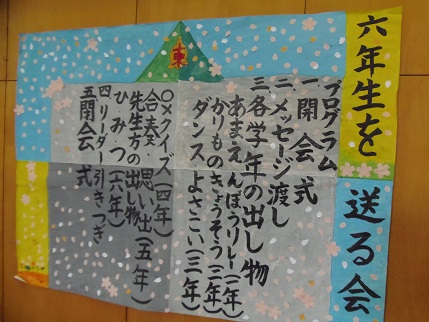 六年生を送る会
プログラム
一開会式
二メッセージ渡し
三各学年の出し物
あまえんぼうリレー(一年)
かりものきょうそう(二年)
ダンス・よさこい(三年)
〇×クイズ(四年)
合奏・思い出(五年)
先生方の出し物
ひみつ(六年)
四リーダー引きつぎ
五閉会式
東